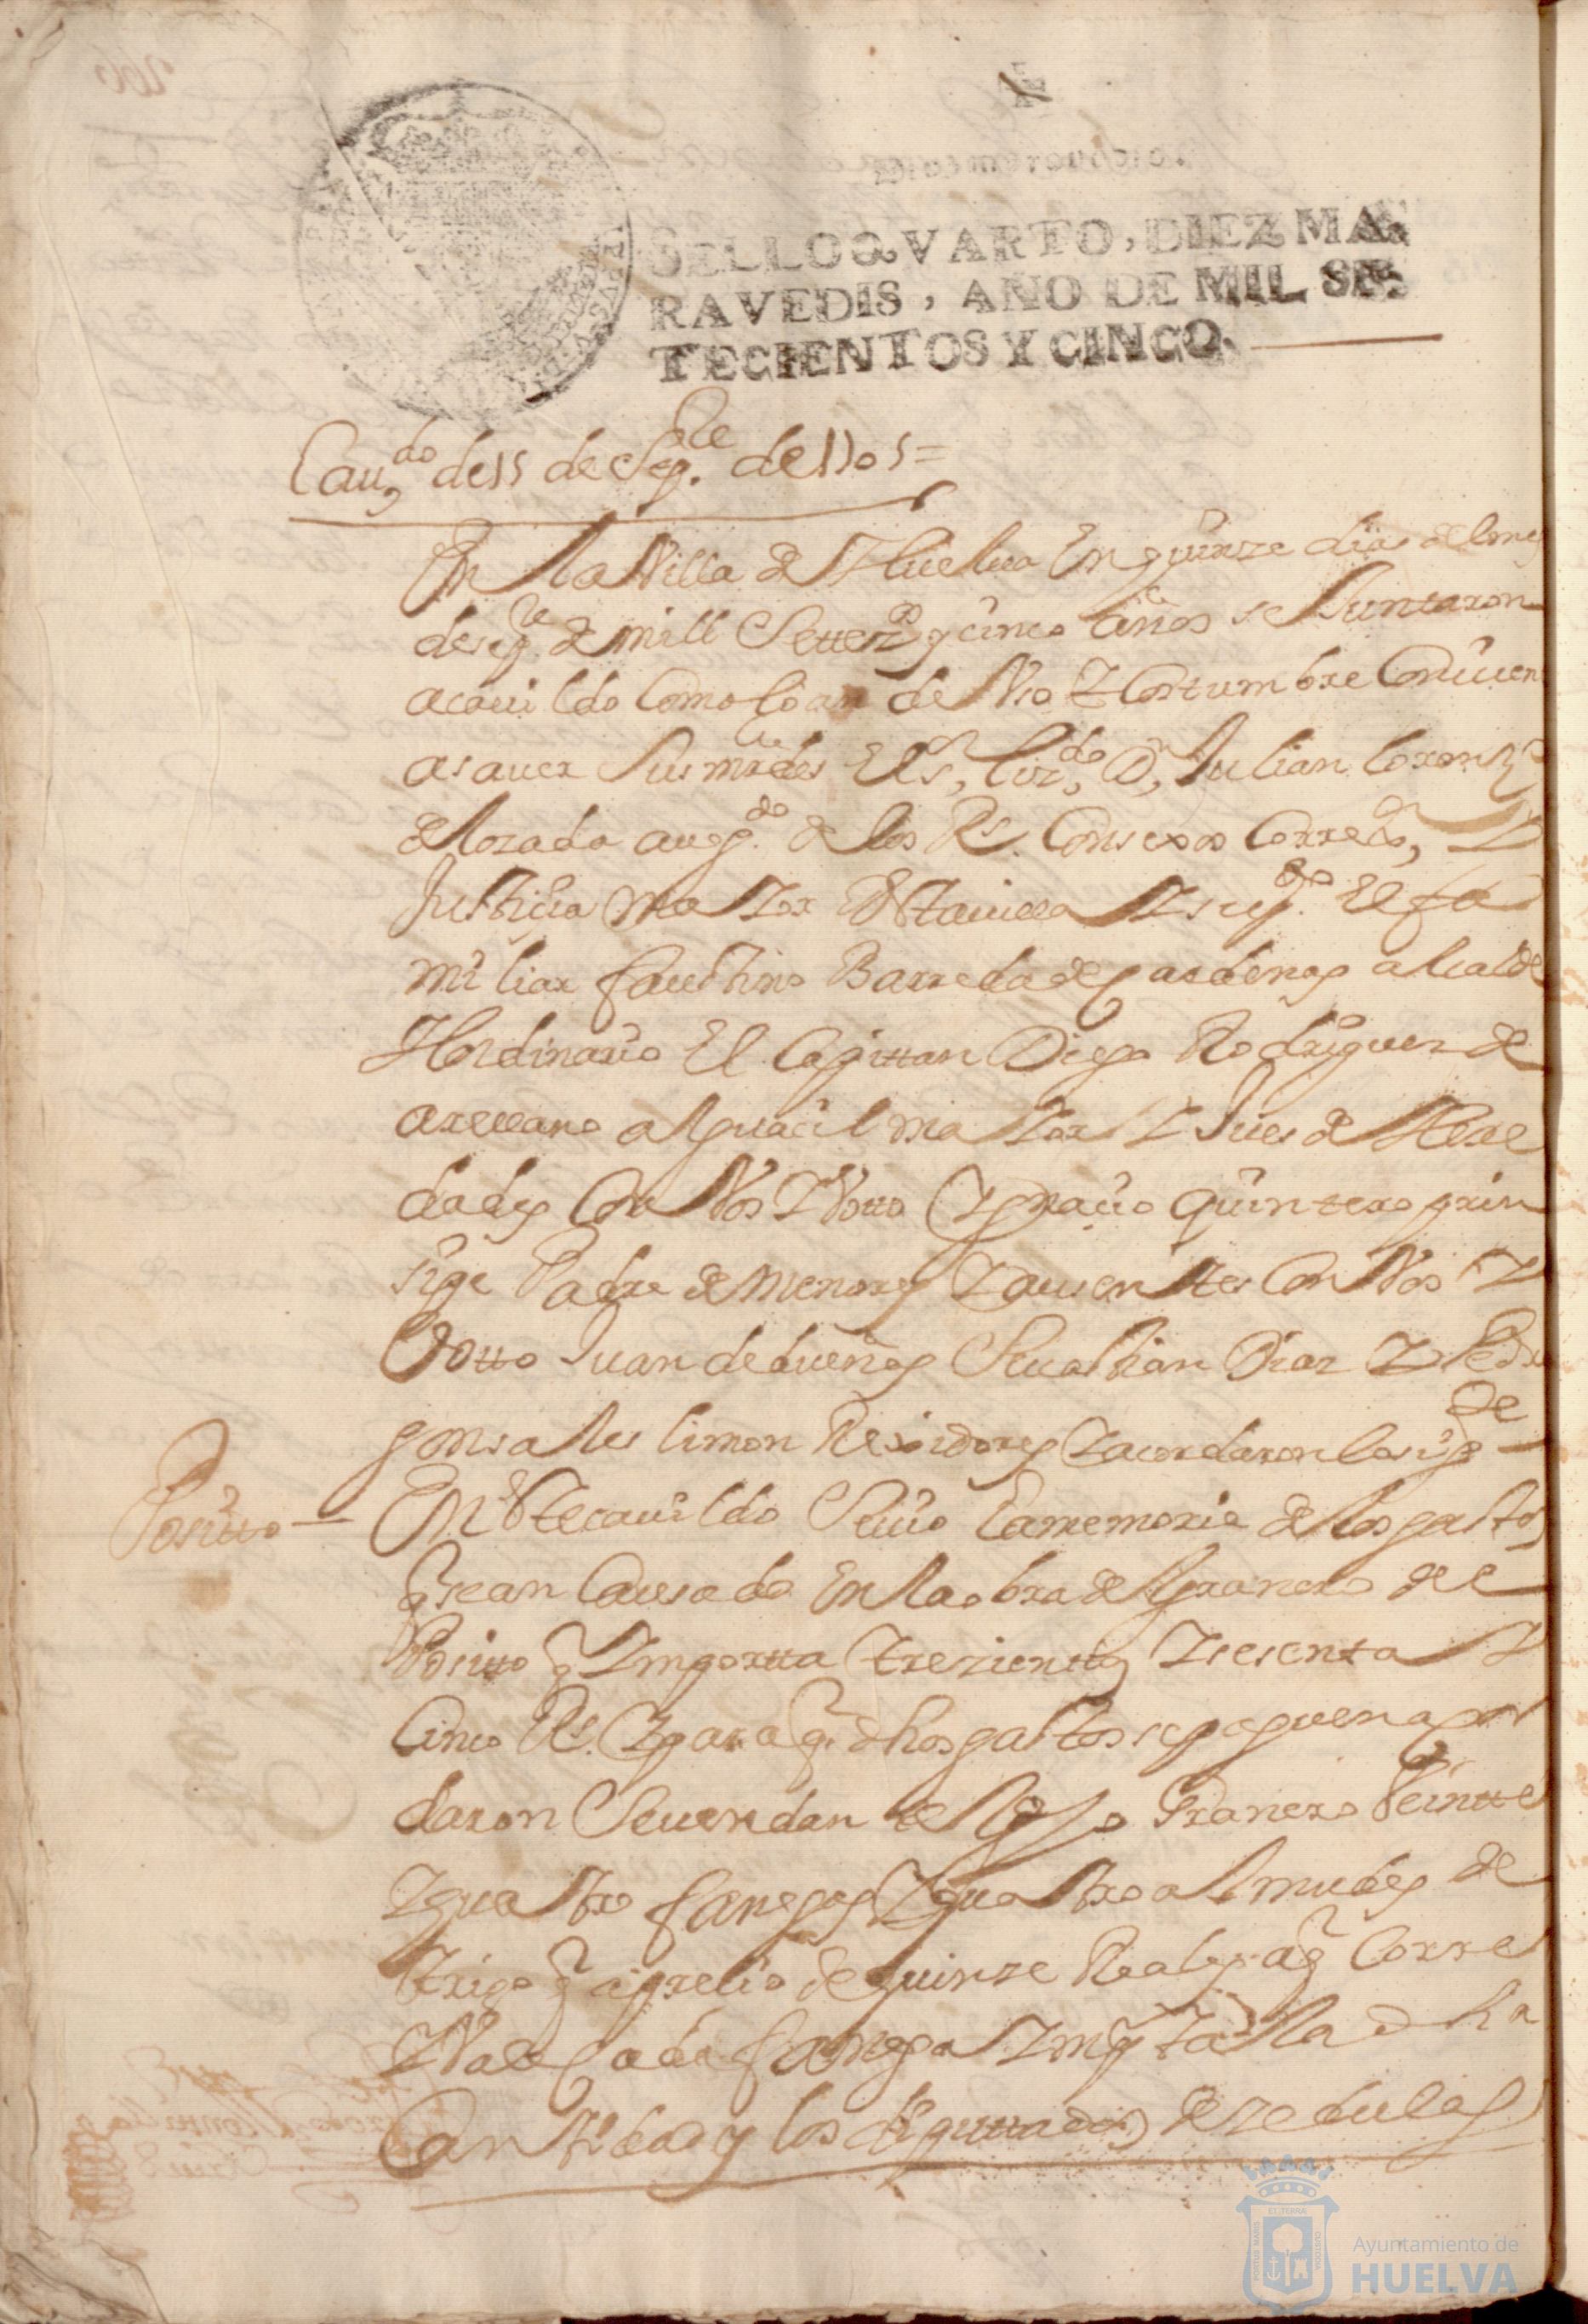 Diez maravedis.
SELLO QVARTO, DIEZ MA-
RAVEDIS, AÑO DE MIL SE-
TECIENTOS Y CINCO.
Cauᵈᵒ de 15 de Sepᵗᵉ de 1705=
En la Villa de Huelua En quinze dias del mes
de sepᵗᵉ de mill Setteᶻᵒˢ y cinco años se Juntaron
a cauildo Como lo an de Vso Y Costumbre Conuiene
a sauer Sus mrᵈes El sʳ, lizᵈᵒ, Dⁿ, Julian lorenzo
de lozada auogᵈᵒ de los Rˢ. Consexos Correᵒʳ, Y
Justiçia maYor Desta uilla Y su
El fa
miliar faustino Barreda de Cardenas alcalde
Hordinario El Capittan Diego Rodriguez de
arellano alguaçil maYor Y Jues de Here
dades Con Vos Y Votto Ygnaçio quintero prin
sipe Padre de menores Y ausentes Con Vos Y
Votto Juan de dueñas Seuastian Diaz Y Pedro
gonsales limon Rexidores Y acordaron lo sigᵗᵉ
Positto — En Este cauildo Se uio la memoria de los gastos
q̃ se an Causado En la obra del granero del
Positto q̃ Ymportta trezienttos Y sesenta Y
Cinco Rˢ. Y para q̃ dhos gastos se paguen acor
daron Se uendan del dho Granero Veintte
Y quatro fanegas Y quatro almudes de
trigo q̃ a preçio de quinze Reales a q̃ Corre
Y Vale Cada fanega Ymportta la dha
Cantidad y los diputtados den zedulas
Ayuntamiento de
HUELVA